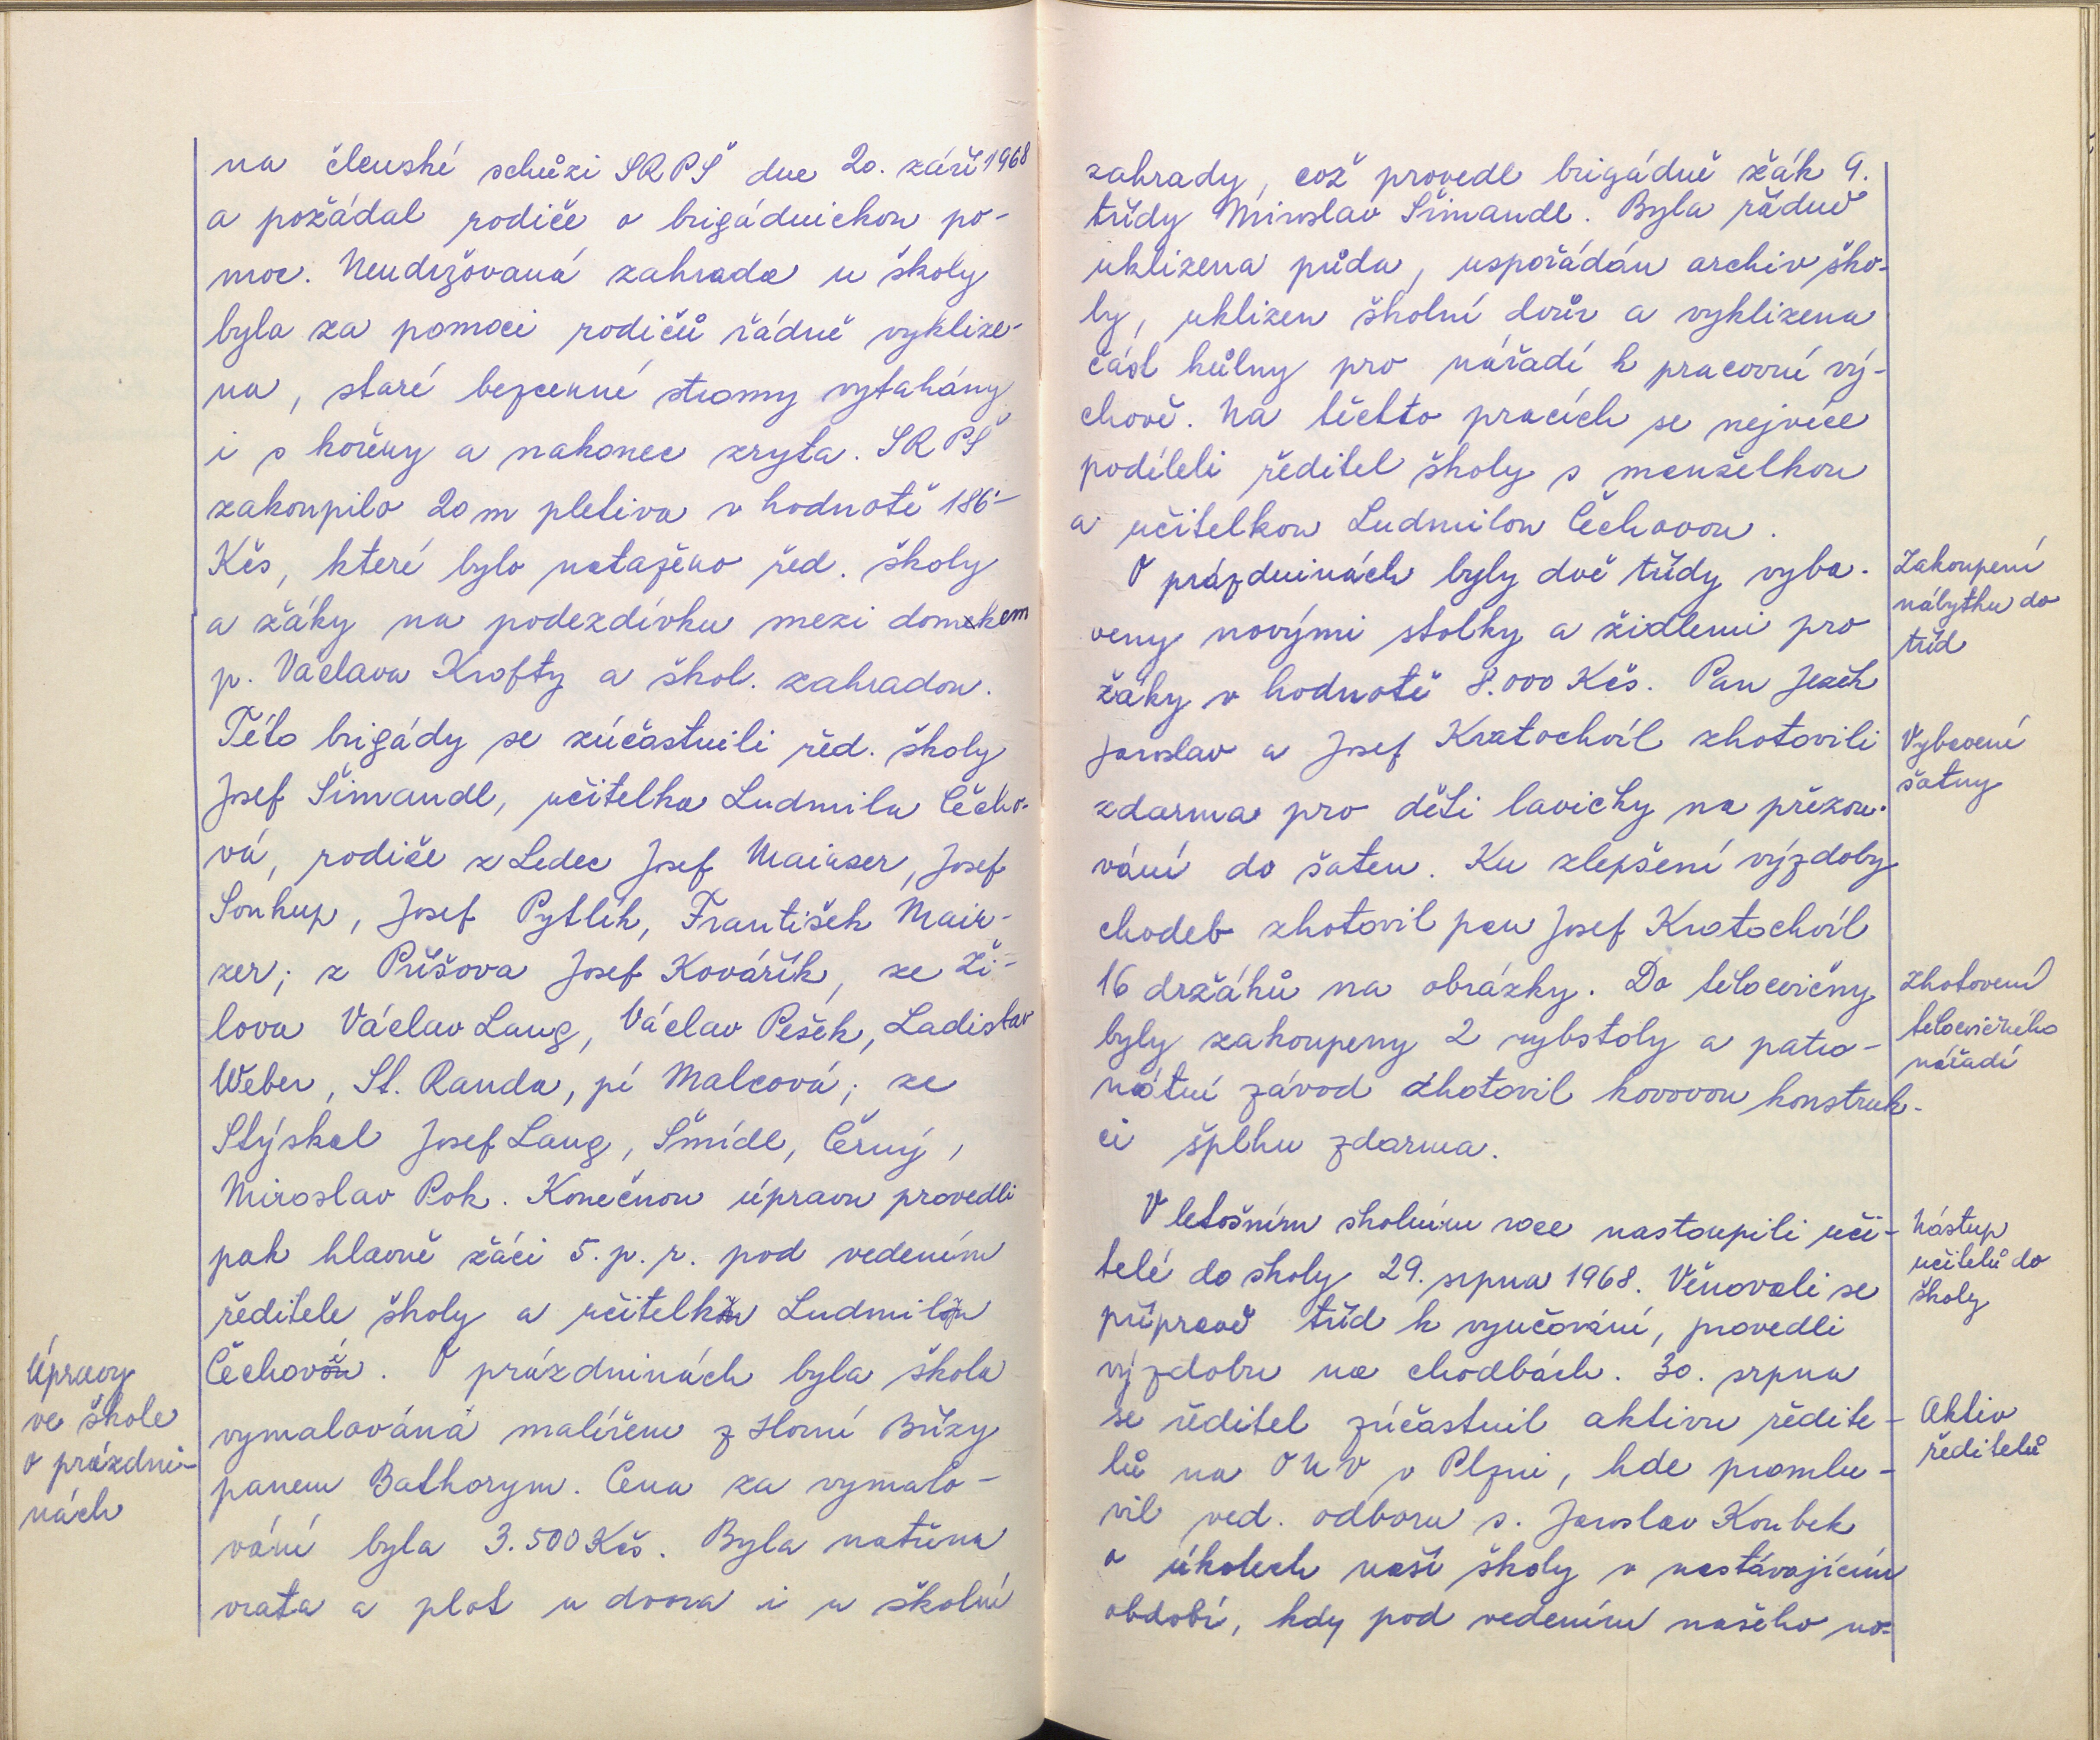 na členské schůzi SRPŠ dne 20. září 1968
a požádal rodiče o brigádnickou po-
moc. Neudržovaná zahrada u školy
byla za pomoci rodičů řádně vyklize-
na, staré bezcenné stromy vytahány
i s kořeny a nakonec zryta. SRPŠ
zakoupilo 20 m pletiva v hodnotě 186.-
Kčs, které bylo nataženo řed. školy
a žáky na podezdívku mezi domkem
p. Václava Krofty a škol. zahradou.
Této brigády se zúčastnili řed. školy
Josef Šimandl, učitelka Ludmila Čecho-
vá, rodiče z Ledec Josef Mainzer, Josef
Soukup, Josef Pytlík, František Main-
zer; z Příšova Josef Kovářík, ze Ži-
lova Václav Lang, Václav Pešek, Ladislav
Weber, St. Randa, pí Malcová; ze
Stýskal Josef Lang, Šmídl, Černý,
Miroslav Pok. Konečnou úpravu provedli
pak hlavně žáci 5. p. r. pod vedením
ředitele školy a učitelky Ludmily
Čechové. O prázdninách byla škola
vymalována malířem z Horní Břízy
panem Bathorym. Cena za vymalo-
vání byla 3.500 Kčs. Byla natřena
vrata a plot u dvora i u školní
Úpravy
ve škole
o prázdni-
nách
zahrady, což provedl brigádně žák 9.
třídy Miroslav Šimandl. Byla řádně
uklizena půda, uspořádán archiv ško-
ly, uklizen školní dvůr a vyklizena
část kůlny pro nářadí k pracovní vý-
chově. Na těchto pracích se nejvíce
podíleli ředitel školy s manželkou
a učitelkou Ludmilou Čechovou.
O prázdninách byly dvě třídy vyba-
veny novými stolky a židlemi pro
žáky v hodnotě 8.000 Kčs. Pan Jezek
Jaroslav a Josef Kratochvíl zhotovili
zdarma pro děti lavičky na přezou-
vání do šaten. Ku zlepšení výzdoby
chodeb zhotovil pan Josef Kratochvíl
16 držáků na obrázky. Do tělocvičny
byly zakoupeny 2 rybstoly a patro-
nátní závod zhotovil kovovou konstruk-
ci šplhu zdarma.
V letošním školním roce nastoupili uči-
telé do školy 29. srpna 1968. Věnovali se
přípravě tříd k vyučování, provedli
výzdobu na chodbách. 30. srpna
se ředitel zúčastnil aktivu ředite-
lů na ONV v Plzni, kde promlu-
vil ved. odboru s. Jaroslav Koubek
o úkolech naší školy v nastávajícím
období, kdy pod vedením našeho no-
Zakoupení
nábytku do
tříd
Vybavení
šatny
Zhotovení
tělocvičného
nářadí
Nástup
učitelů do
školy
Aktiv
ředitelů